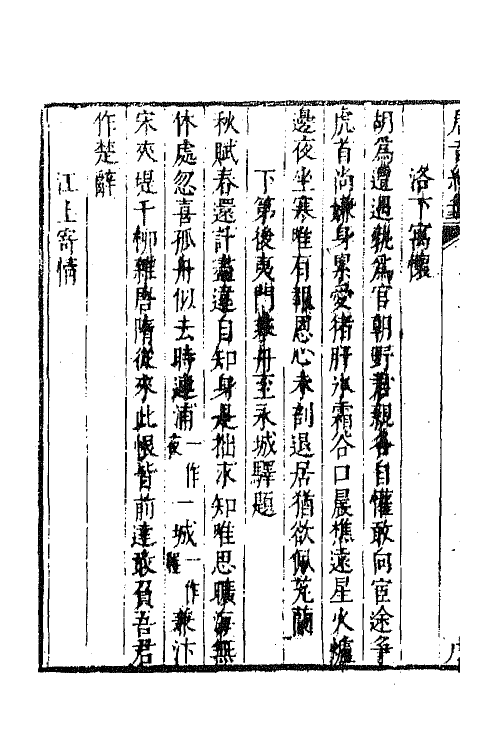 洛下寓懷
胡為遭遇孰為官朝野君親各自懽敢向宦途爭
虎首尚嫌身累愛猪肝氷霜谷口晨樵遠星火爐
邊夜坐寒唯有報恩心未剖退居猶欲佩芄蘭
下第後夷門乗舟至永城驛題
秋賦春還計盡違自知身是拙求知唯思曠海無
休處忽喜孤舟似去時連浦一作夜一城一作程兼汴
宋夾堤千柳雜唐隋從來此恨皆前達敢負吾君
作楚辭
江上寄情